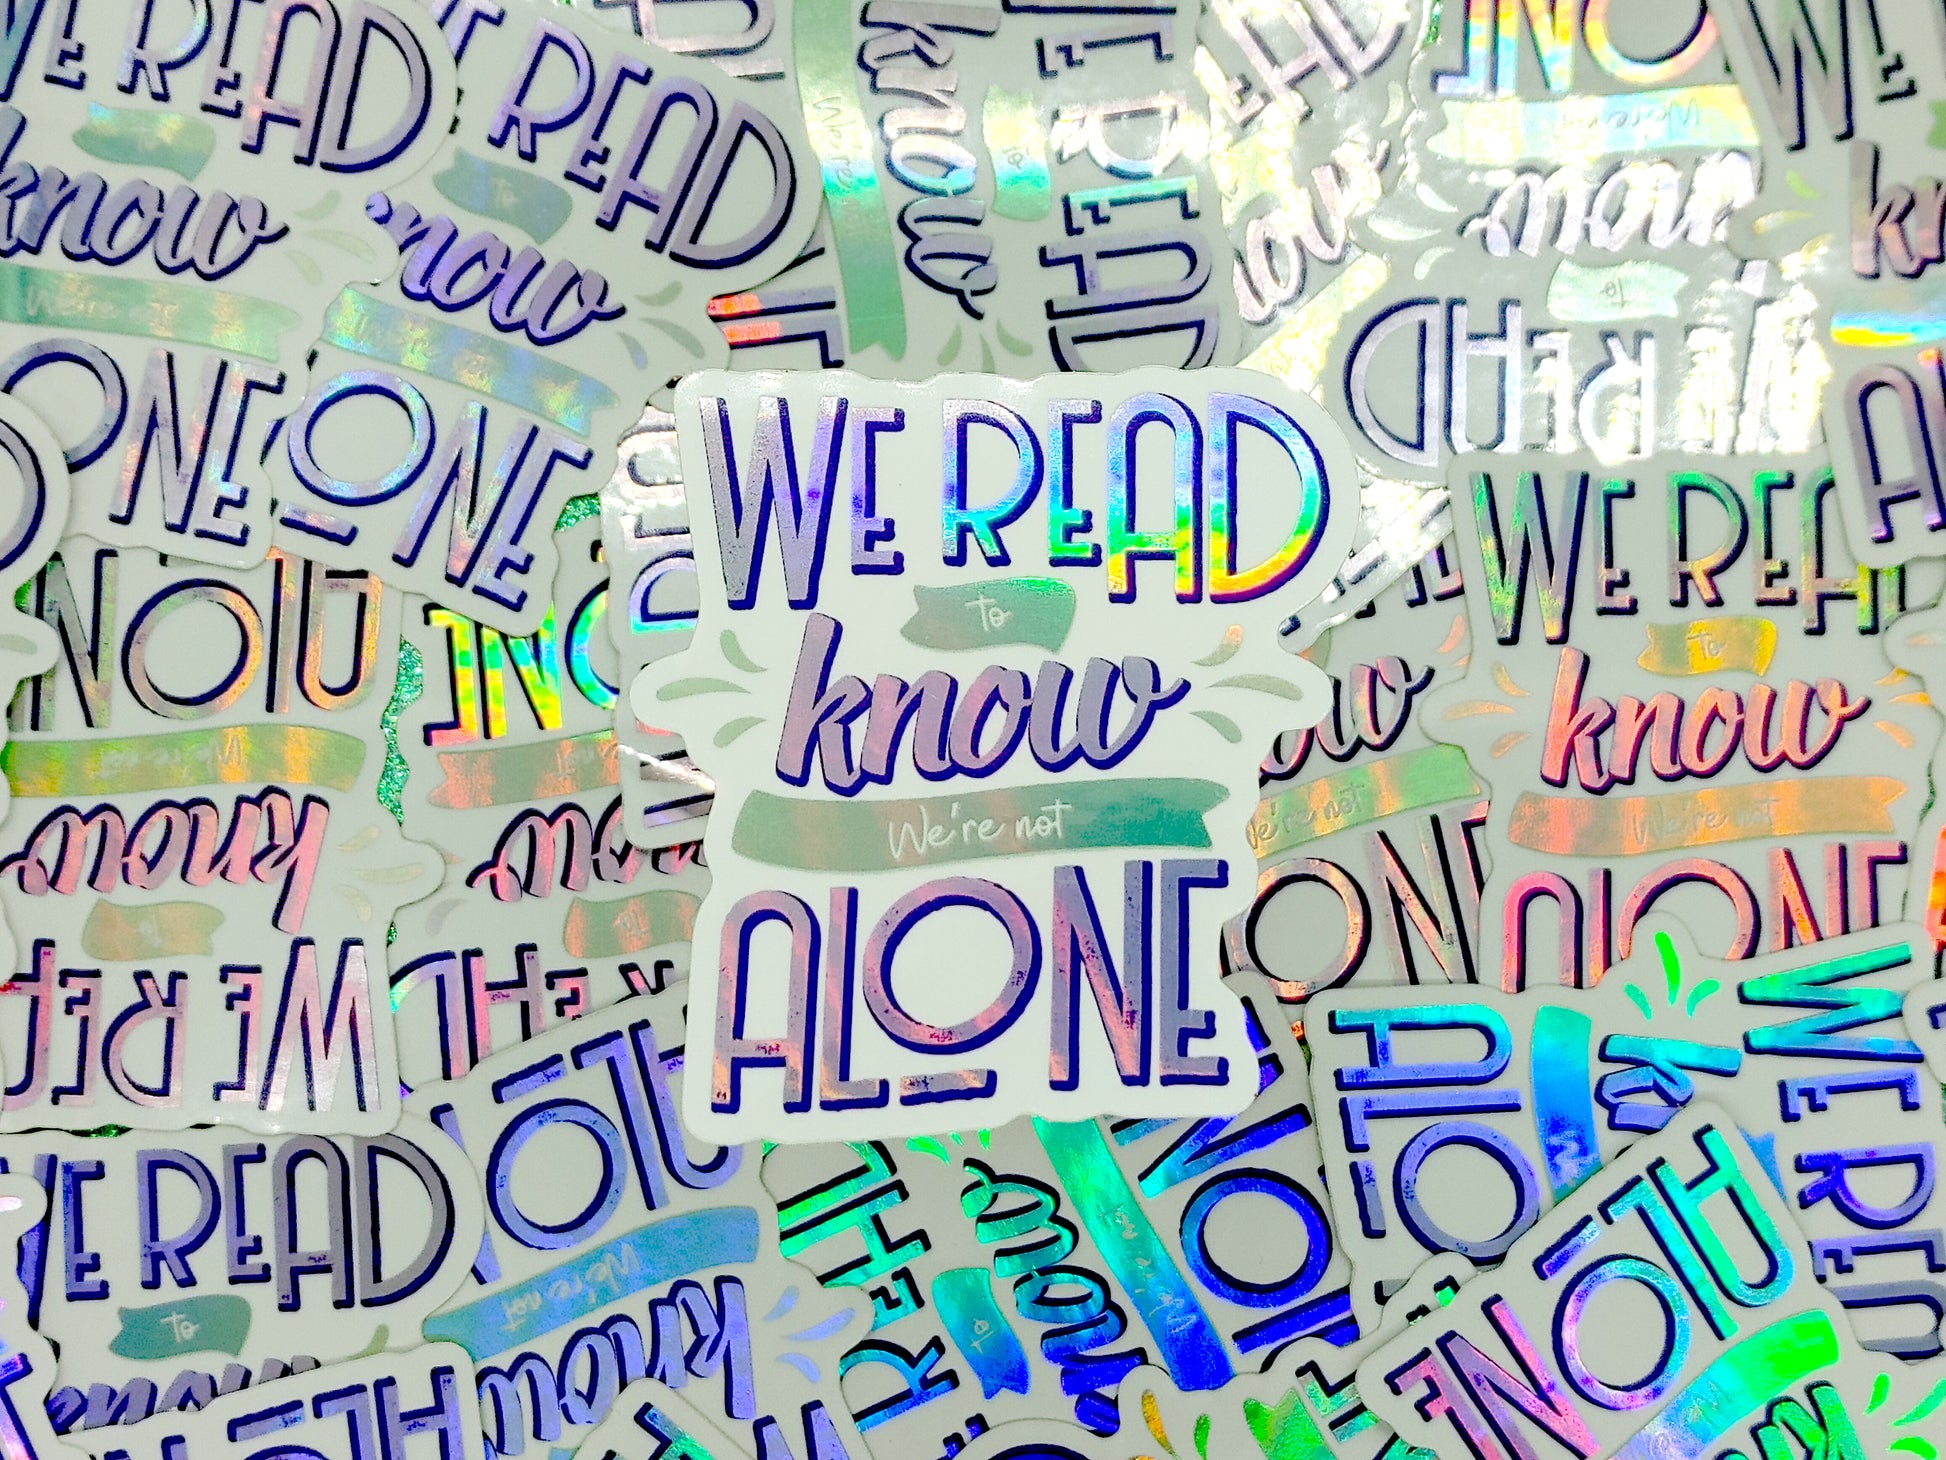 WE READ
to
know
We're not
ALONE